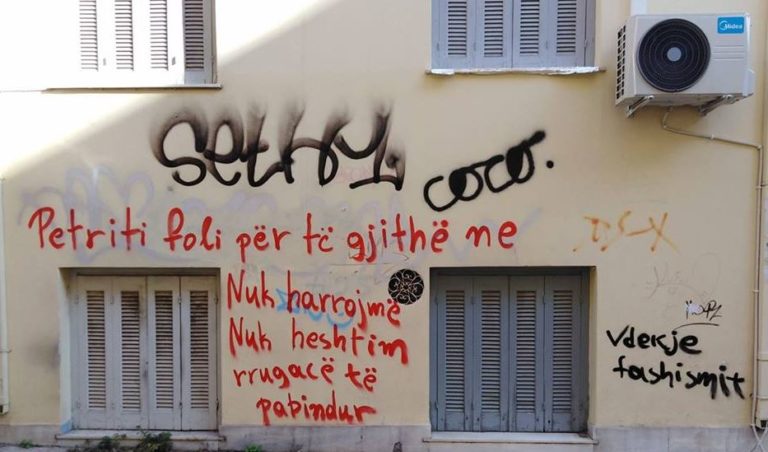 Midea
sethy
coco.
Petriti foli për të gjithë ne
Nuk harrojmë
Nuk heshtim
rrugaçë të
pabindur
Vdekje
fashismit